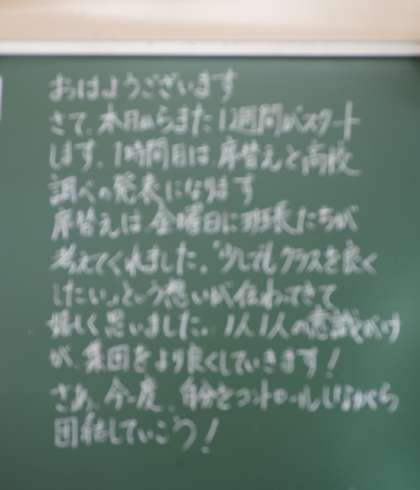 おはようございます
さて、本日からまた1週間がスタート
します。1時間目は席替えと高校
調べの発表になります
席替えは金曜日に班長たちが
考えてくれました。"少しでもクラスを良く
したい"という想いが伝わってきて
嬉しく思いました。1人1人の意識だけ
が、集団をより良くしていきます!
さあ、今一度、自分をコントロールしながら
団結していこう!